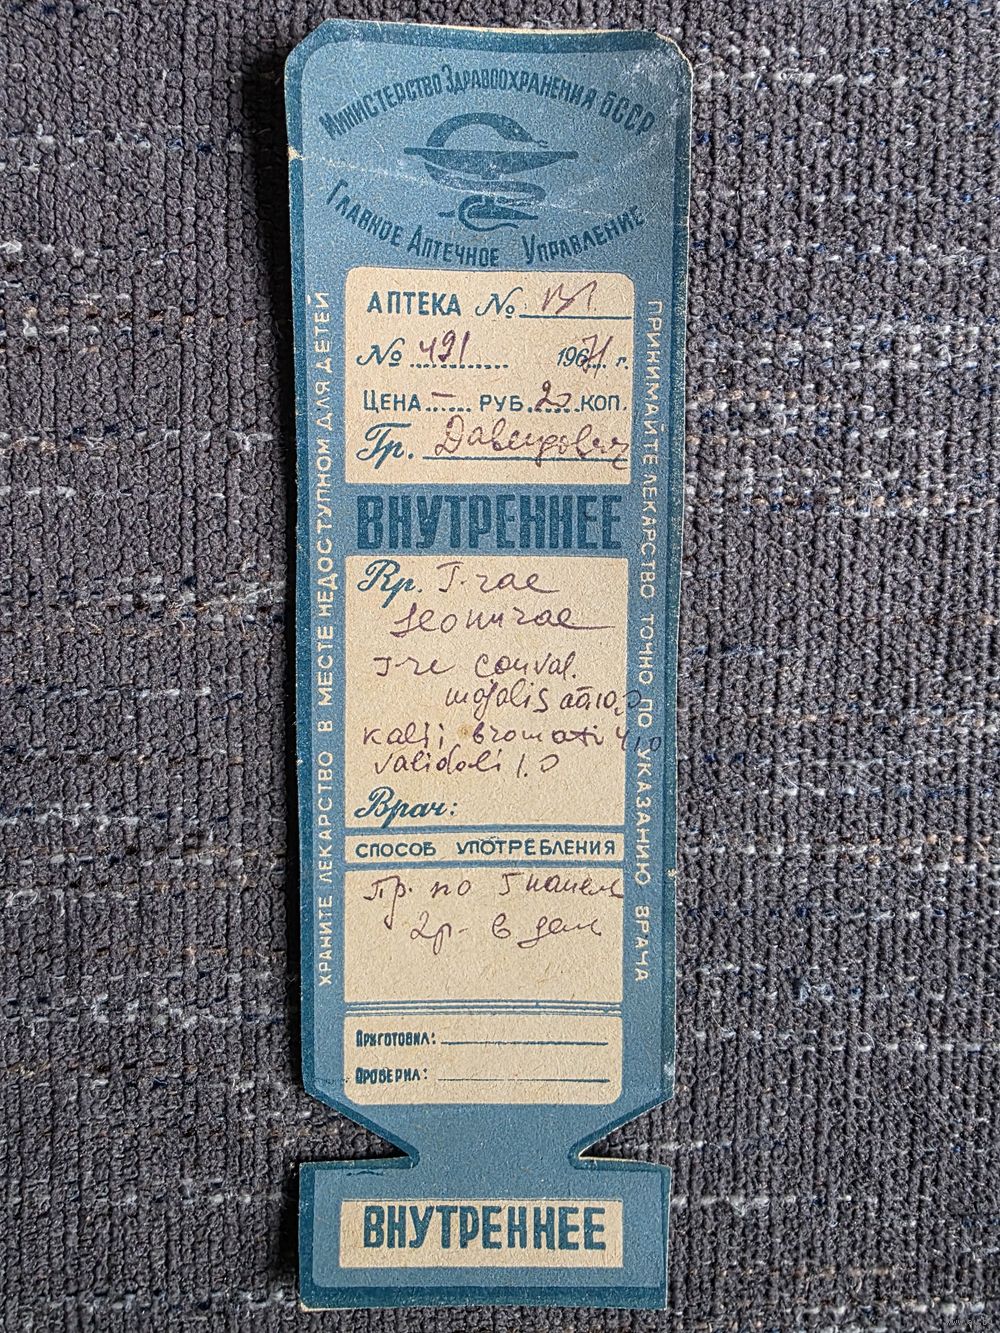 Министерство Здравоохранения БССР
Главное Аптечное Управление
АПТЕКА №
№ 491 1967 г.
ЦЕНА – РУБ. 20 КОП.
Гр. Давидович
ВНУТРЕННЕЕ
Rp. T-rae
leonurae
T-re conval.
majalis āā 10,0
kalii bromati 4,0
validoli 1.0
Врач:
СПОСОБ УПОТРЕБЛЕНИЯ
Пр. по
2р. в день
Приготовил:
Проверил:
ВНУТРЕННЕЕ
ХРАНИТЕ ЛЕКАРСТВО В МЕСТЕ НЕДОСТУПНОМ ДЛЯ ДЕТЕЙ
ПРИНИМАЙТЕ ЛЕКАРСТВО ТОЧНО ПО УКАЗАНИЮ ВРАЧА